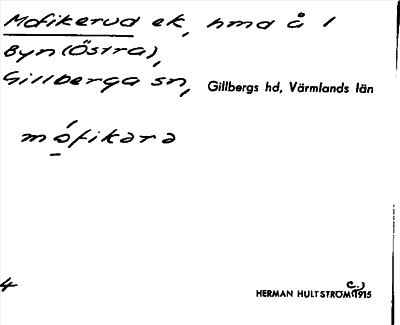 Mofikerud ek, hmd å 1
Byn (Östra),
Gillberga sn, Gillbergs hd, Värmlands län
mófikara
4
HERMAN HULTSTRÖM (c.) 1915